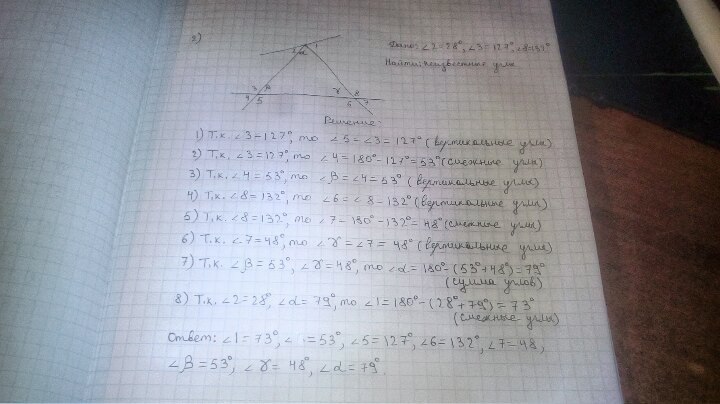 2)
Дано: ∠2=28°, ∠3=127°, ∠8=132°
Найти: неизвестные углы
2 α 1
3 β γ 8
4 5 6 7
Решение:
1) Т.к. ∠3=127°, то ∠5=∠3=127° (вертикальные углы)
2) Т.к. ∠3=127°, то ∠4=180°-127°=53° (смежные углы)
3) Т.к. ∠4=53°, то ∠β=∠4=53° (вертикальные углы)
4) Т.к. ∠8=132°, то ∠6=∠8-132° (вертикальные углы)
5) Т.к. ∠8=132°, то ∠7-180°-132°=48° (смежные углы)
6) Т.к. ∠7=48°, то ∠γ=∠7=48° (вертикальные углы)
7) Т.к. ∠β=53°, ∠γ=48°, то ∠α=180°-(53°+48°)=79°
(сумма углов)
8) Т.к. ∠2=28°, ∠α=79°, то ∠1=180°-(28°+79°)=73°
(смежные углы)
Ответ: ∠1=73°, ∠ =53°, ∠5=127°, ∠6=132°, ∠7=48,
∠β=53°, ∠γ=48°, ∠α=79°.